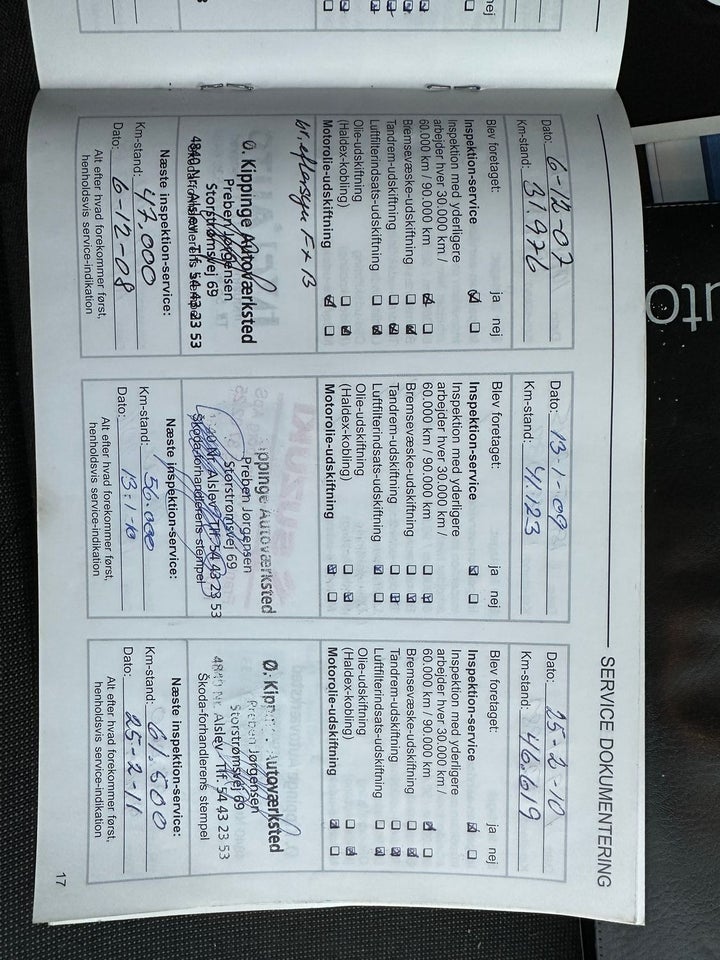 SERVICE DOKUMENTERING
Dato: 6-12-07
Km-stand: 31.976
Blev foretaget: ja nej
Inspektion-service
Inspektion med yderligere
arbejder hver 30.000 km /
60.000 km / 90.000 km
Bremsevæske-udskiftning
Tandrem-udskiftning
Luftfilterindsats-udskiftning
Olie-udskiftning
(Haldex-kobling)
Motorolie-udskiftning
br.eftersyn F+B
Ø. Kippinge Autoværksted
Preben Jørgensen
Storstrømsvej 69
4840 Nr. Alslev Tlf. 54 43 23 53
Næste inspektion-service:
Km-stand: 47.000
Dato: 6-12-08
Alt efter hvad forekommer først,
henholdsvis service-indikation
Dato: 13-1-09
Km-stand: 41.123
Blev foretaget: ja nej
Inspektion-service
Inspektion med yderligere
arbejder hver 30.000 km /
60.000 km / 90.000 km
Bremsevæske-udskiftning
Tandrem-udskiftning
Luftfilterindsats-udskiftning
Olie-udskiftning
(Haldex-kobling)
Motorolie-udskiftning
ippinge Autoværksted
Preben Jørgensen
Storstrømsvej 69
Nr. Alslev Tlf. 54 43 23 53
Skoda-forhandlerens stempel
Næste inspektion-service:
Km-stand: 56.000
Dato: 13-1-10
Alt efter hvad forekommer først,
henholdsvis service-indikation
Dato: 25-2-10
Km-stand: 46.619
Blev foretaget: ja nej
Inspektion-service
Inspektion med yderligere
arbejder hver 30.000 km /
60.000 km / 90.000 km
Bremsevæske-udskiftning
Tandrem-udskiftning
Luftfilterindsats-udskiftning
Olie-udskiftning
(Haldex-kobling)
Motorolie-udskiftning
Ø. Kippinge Autoværksted
Preben Jørgensen
Storstrømsvej 69
4840 Nr. Alslev Tlf. 54 43 23 53
Škoda-forhandlerens stempel
Næste inspektion-service:
Km-stand: 61.500
Dato: 25-2-11
Alt efter hvad forekommer først,
henholdsvis service-indikation
17
uto
nej